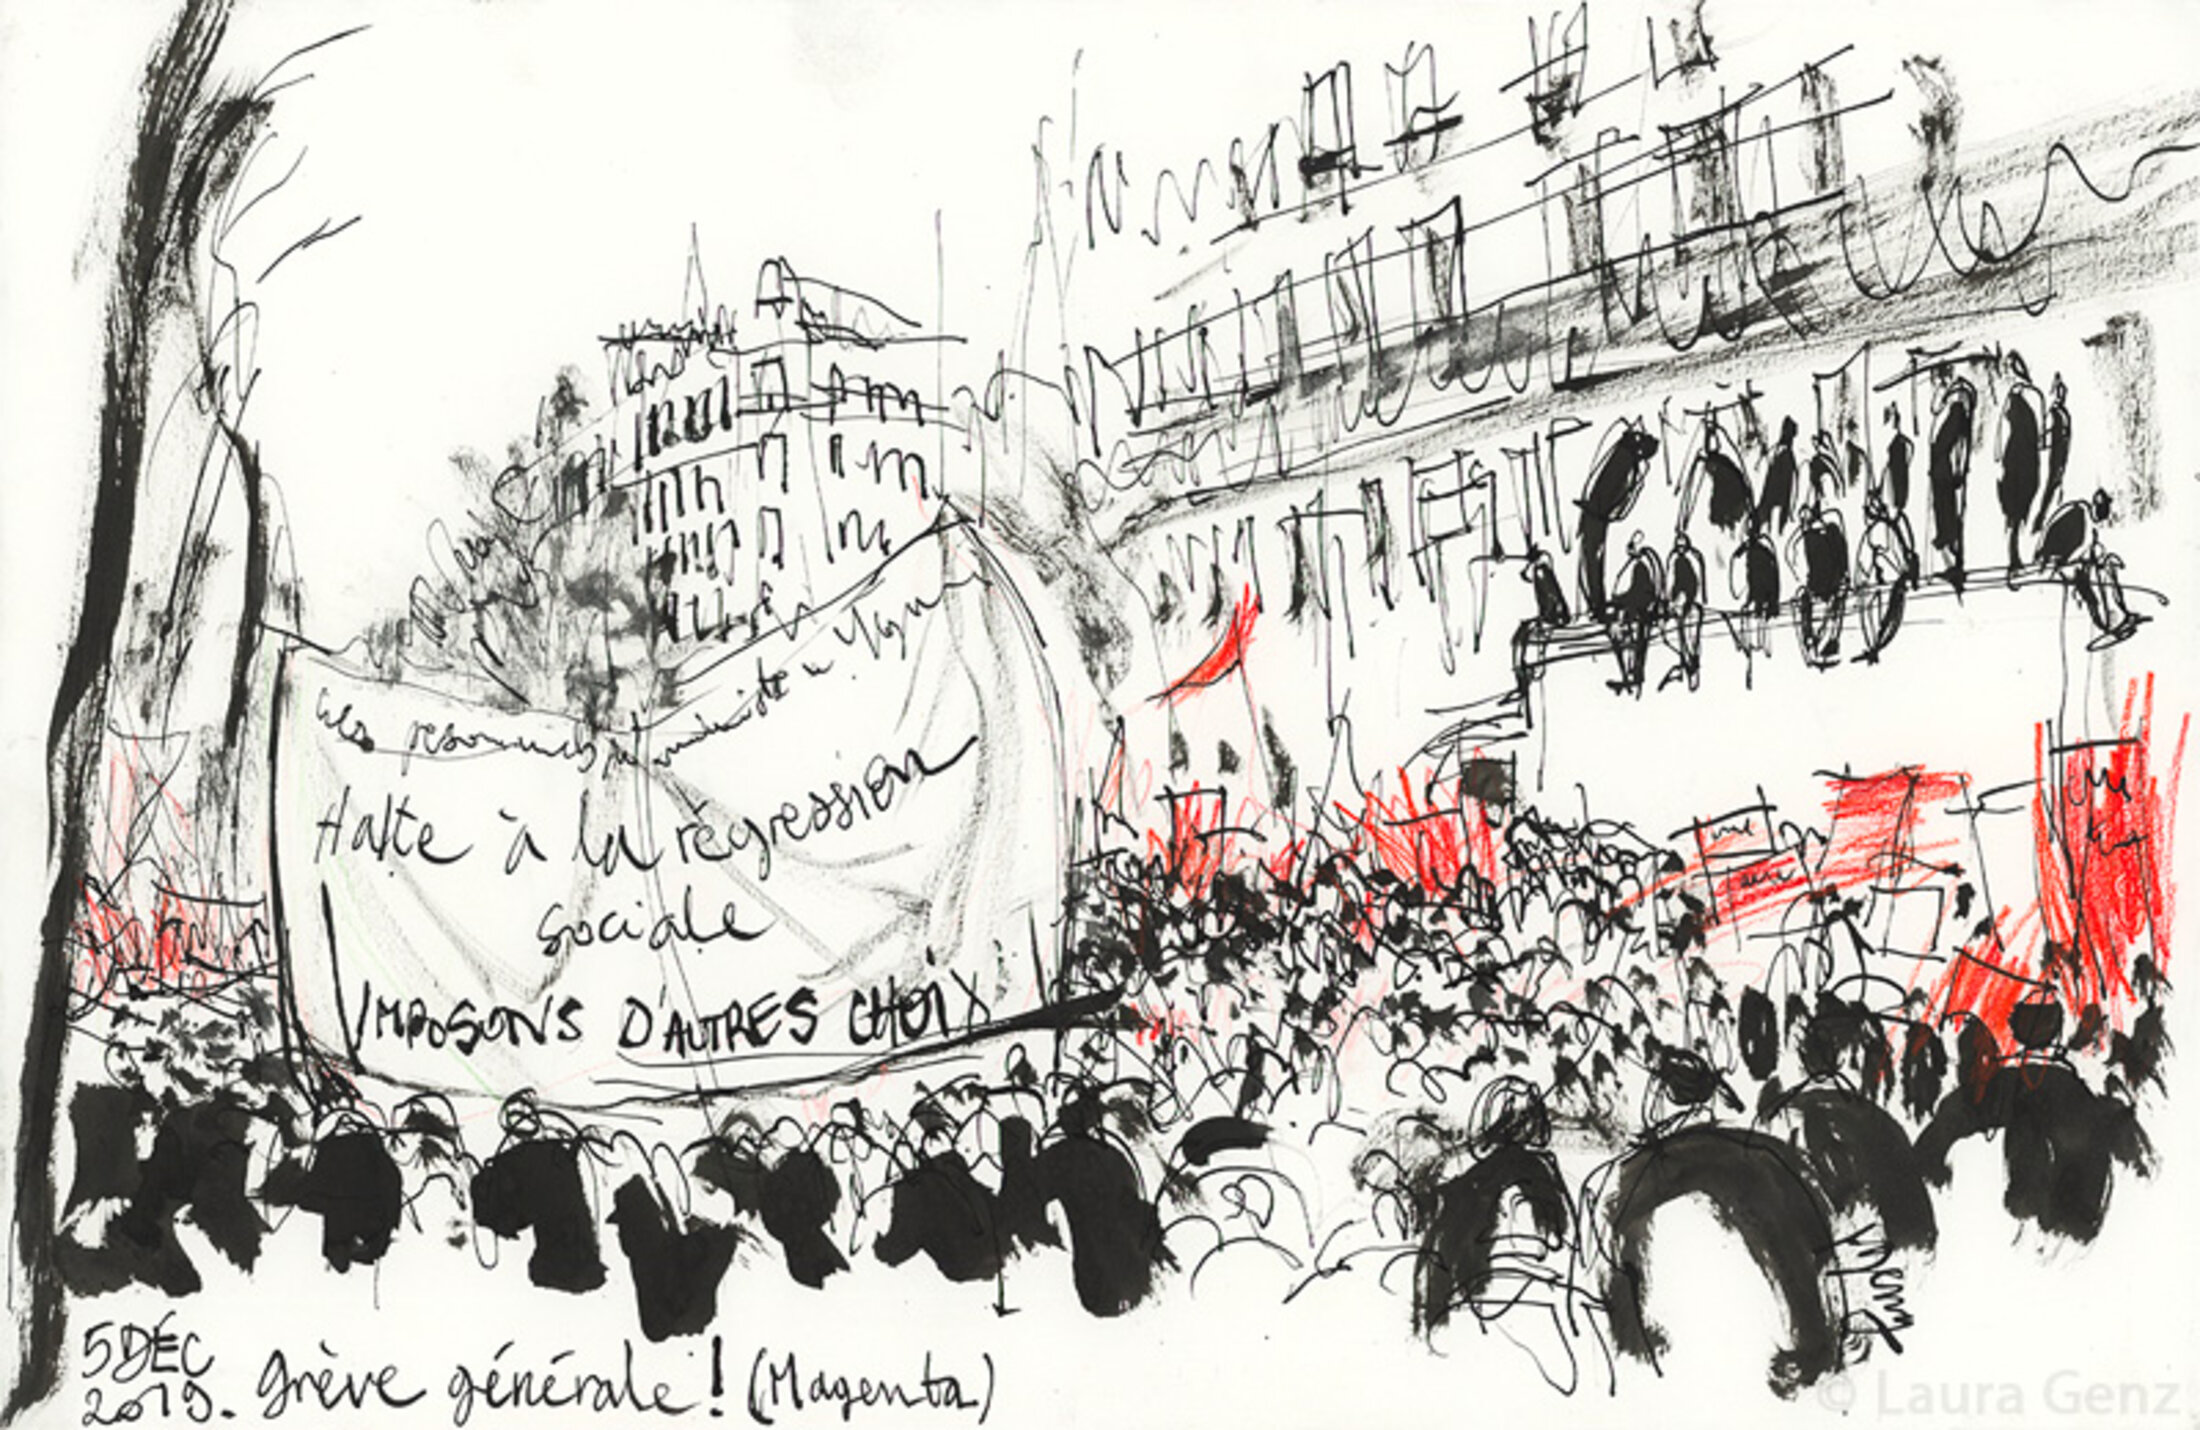 Halte à la régression
sociale
IMPOSONS D'AUTRES CHOIX
5 DÉC
2019. grève générale! (Magenta)
© Laura Genz